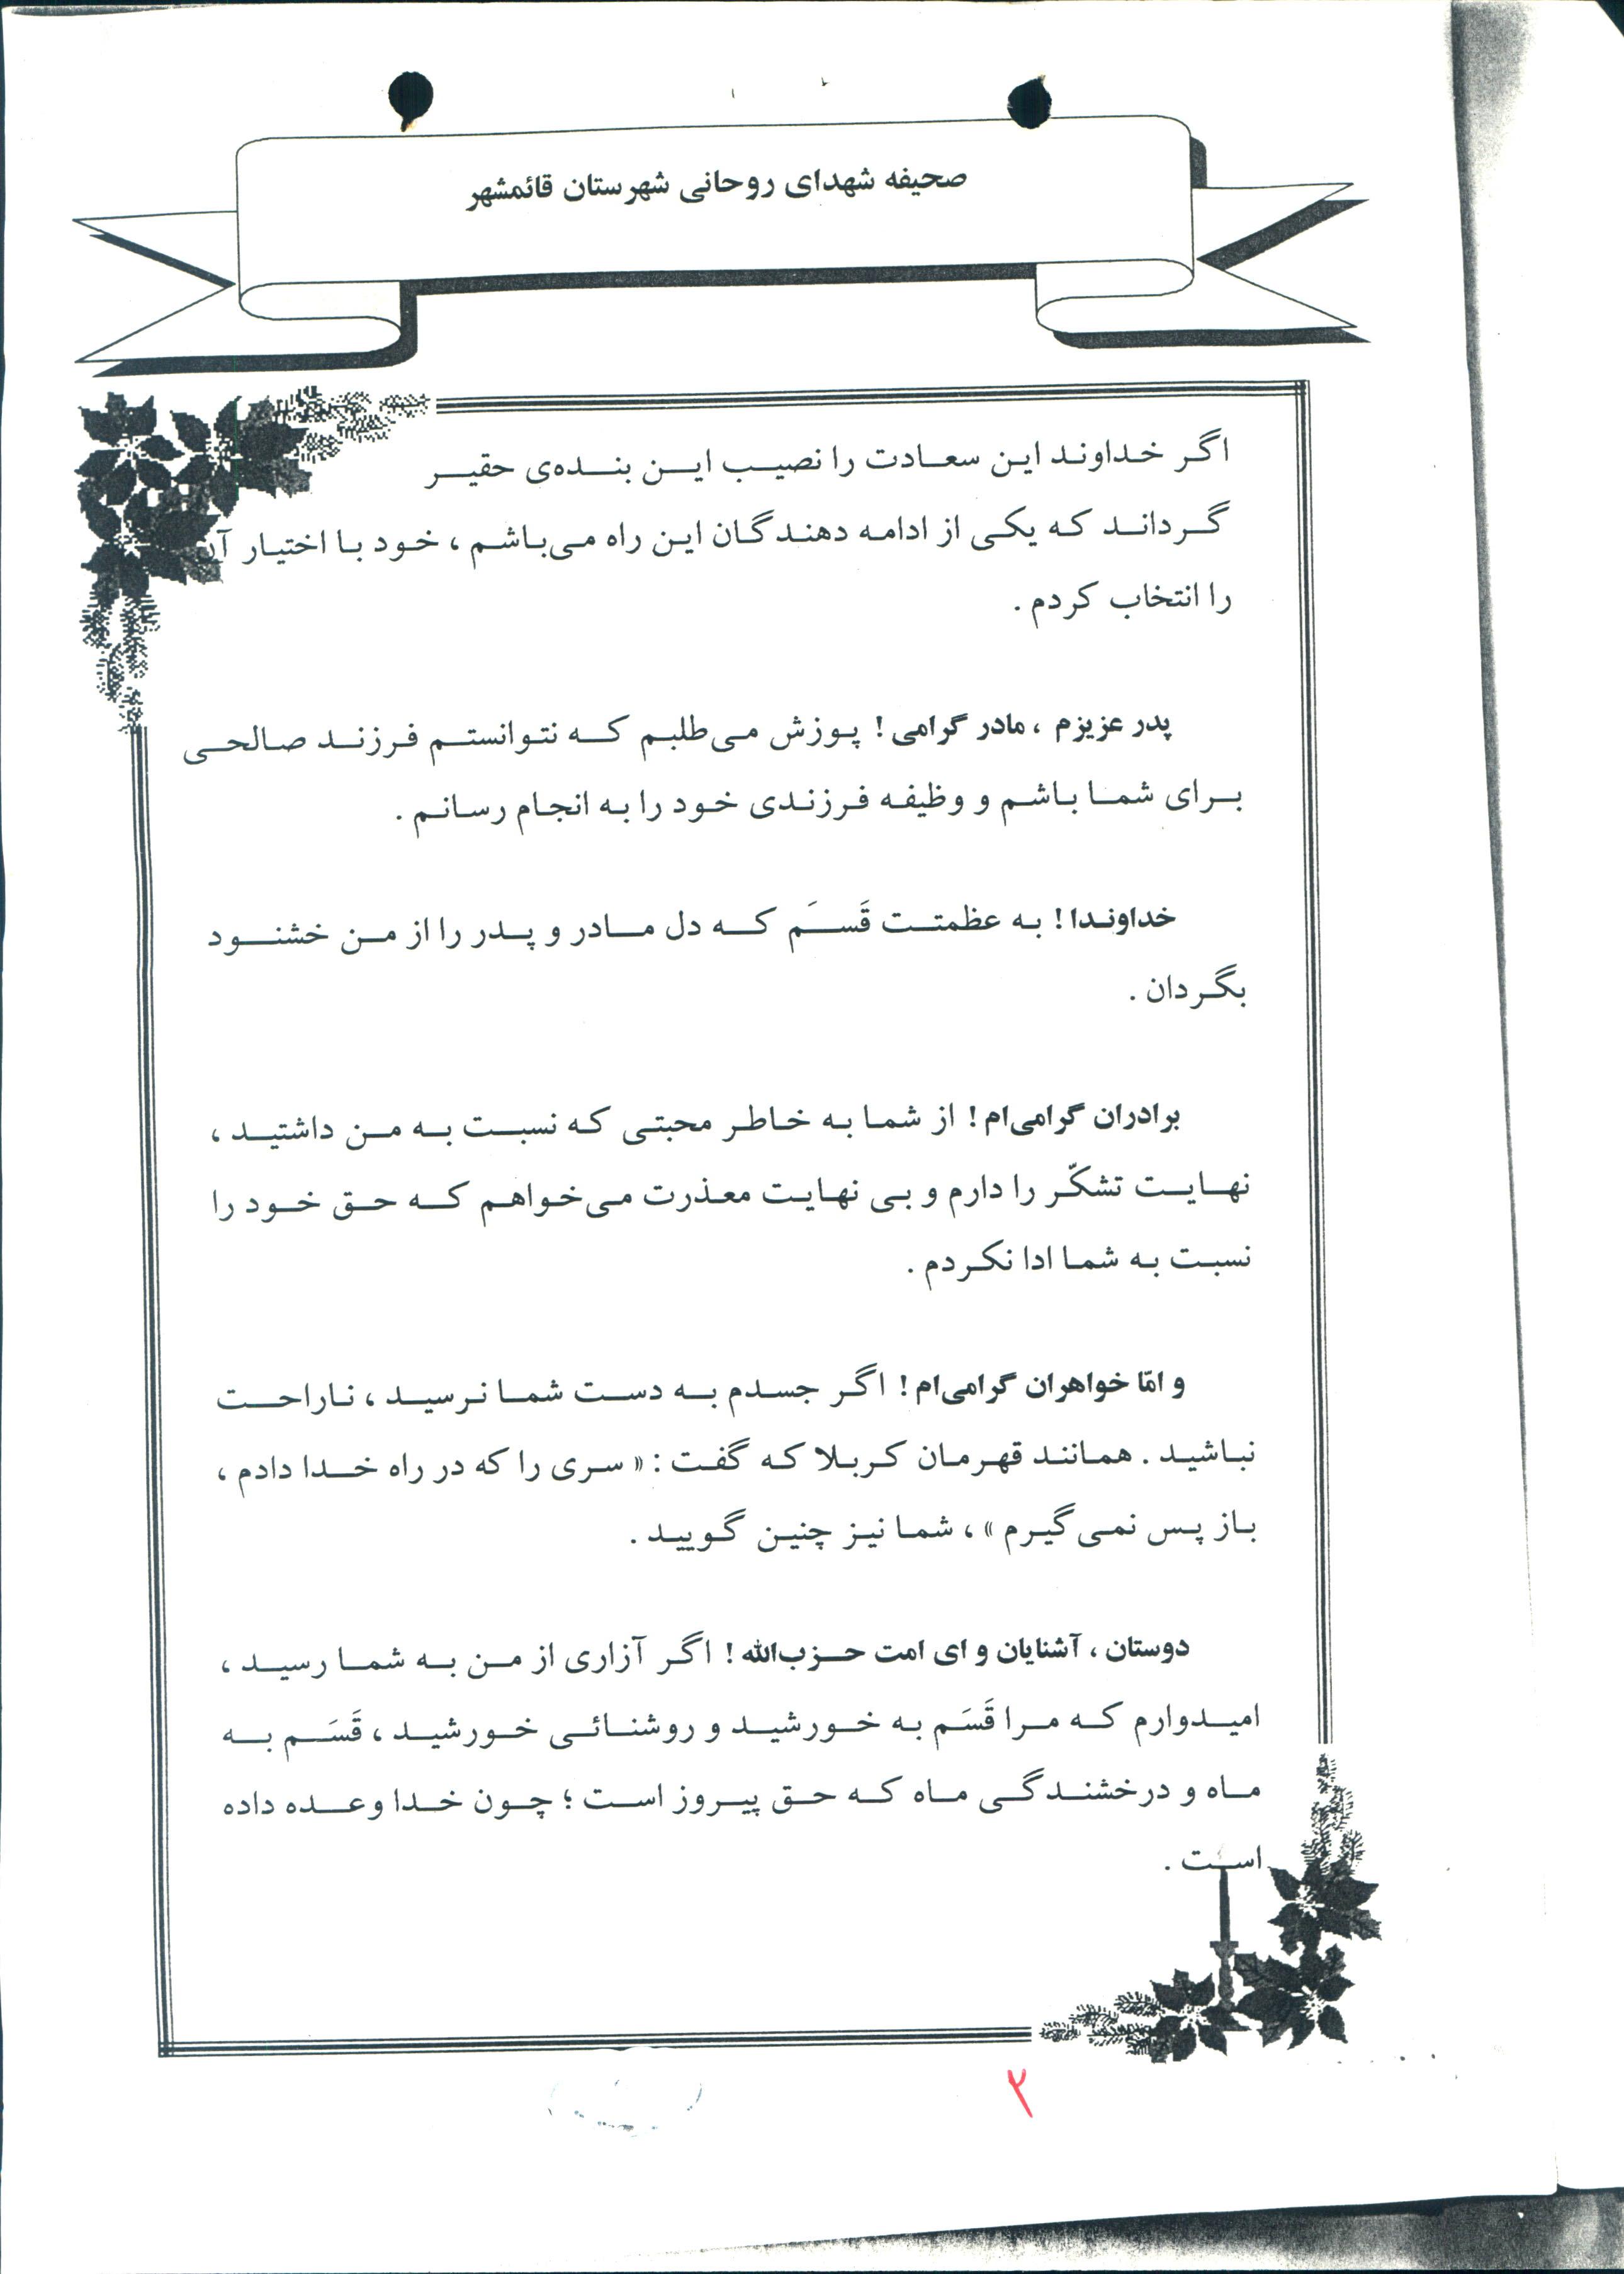 صحیفه شهدای روحانی شهرستان قائمشهر
اگر خداوند این سعادت را نصیب این بنده‌ی حقیر
گرداند که یکی از ادامه دهندگان این راه می‌باشم ، خود با اختیار آن
را انتخاب کردم .
پدر عزیزم ، مادر گرامی ! پوزش می‌طلبم که نتوانستم فرزند صالحی
برای شما باشم و وظیفه فرزندی خود را به انجام رسانم .
خداوندا ! به عظمتت قَسَم که دل مادر و پدر را از من خشنود
بگردان .
برادران گرامی‌ام ! از شما به خاطر محبتی که نسبت به من داشتید ،
نهایت تشکّر را دارم و بی نهایت معذرت می‌خواهم که حق خود را
نسبت به شما ادا نکردم .
و امّا خواهران گرامی‌ام ! اگر جسدم به دست شما نرسید ، ناراحت
نباشید . همانند قهرمان کربلا که گفت : « سری را که در راه خدا دادم ،
باز پس نمی‌گیرم » ، شما نیز چنین گویید .
دوستان ، آشنایان و ای امت حزب‌الله ! اگر آزاری از من به شما رسید ،
امیدوارم که مرا قَسَم به خورشید و روشنائی خورشید ، قَسَم به
ماه و درخشندگی ماه که حق پیروز است ؛ چون خدا وعده داده
است .
۲